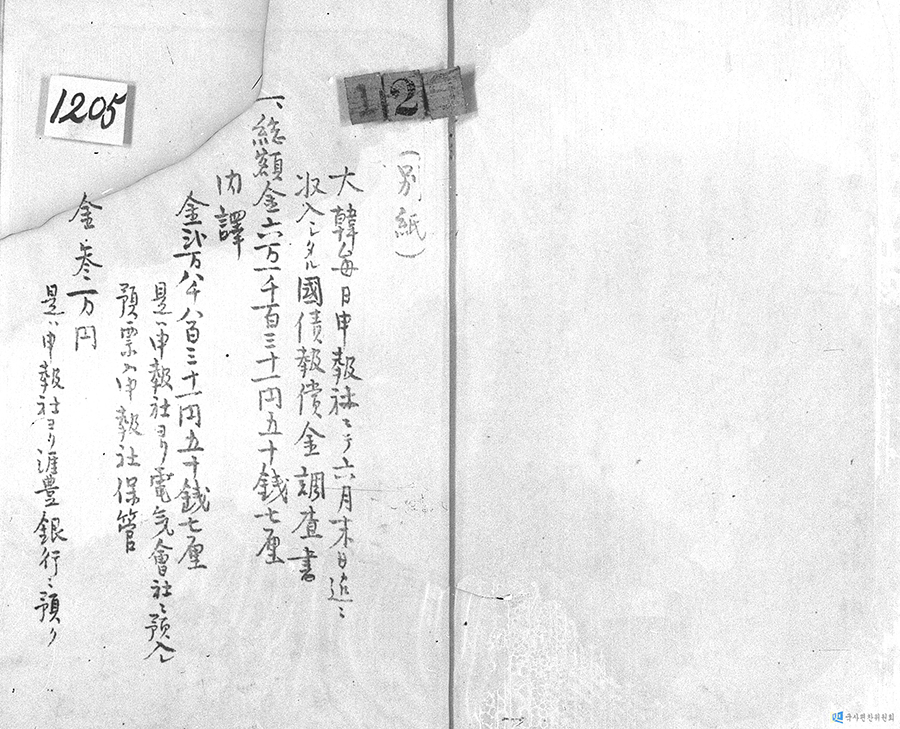 (別紙)
大韓每日申報社ニテ六月末日迄ニ
收入シタル國債報償金調査書
一、総額金六万一千百三十一円五十銭七厘
内譯
金弐万八千八百三十一円五十銭七厘
是ハ申報社ヨリ電気會社ニ預入
預票ハ申報社保管
金参万円
是ハ申報社ヨリ滙豊銀行ニ預ク
1205
12
국사편찬위원회